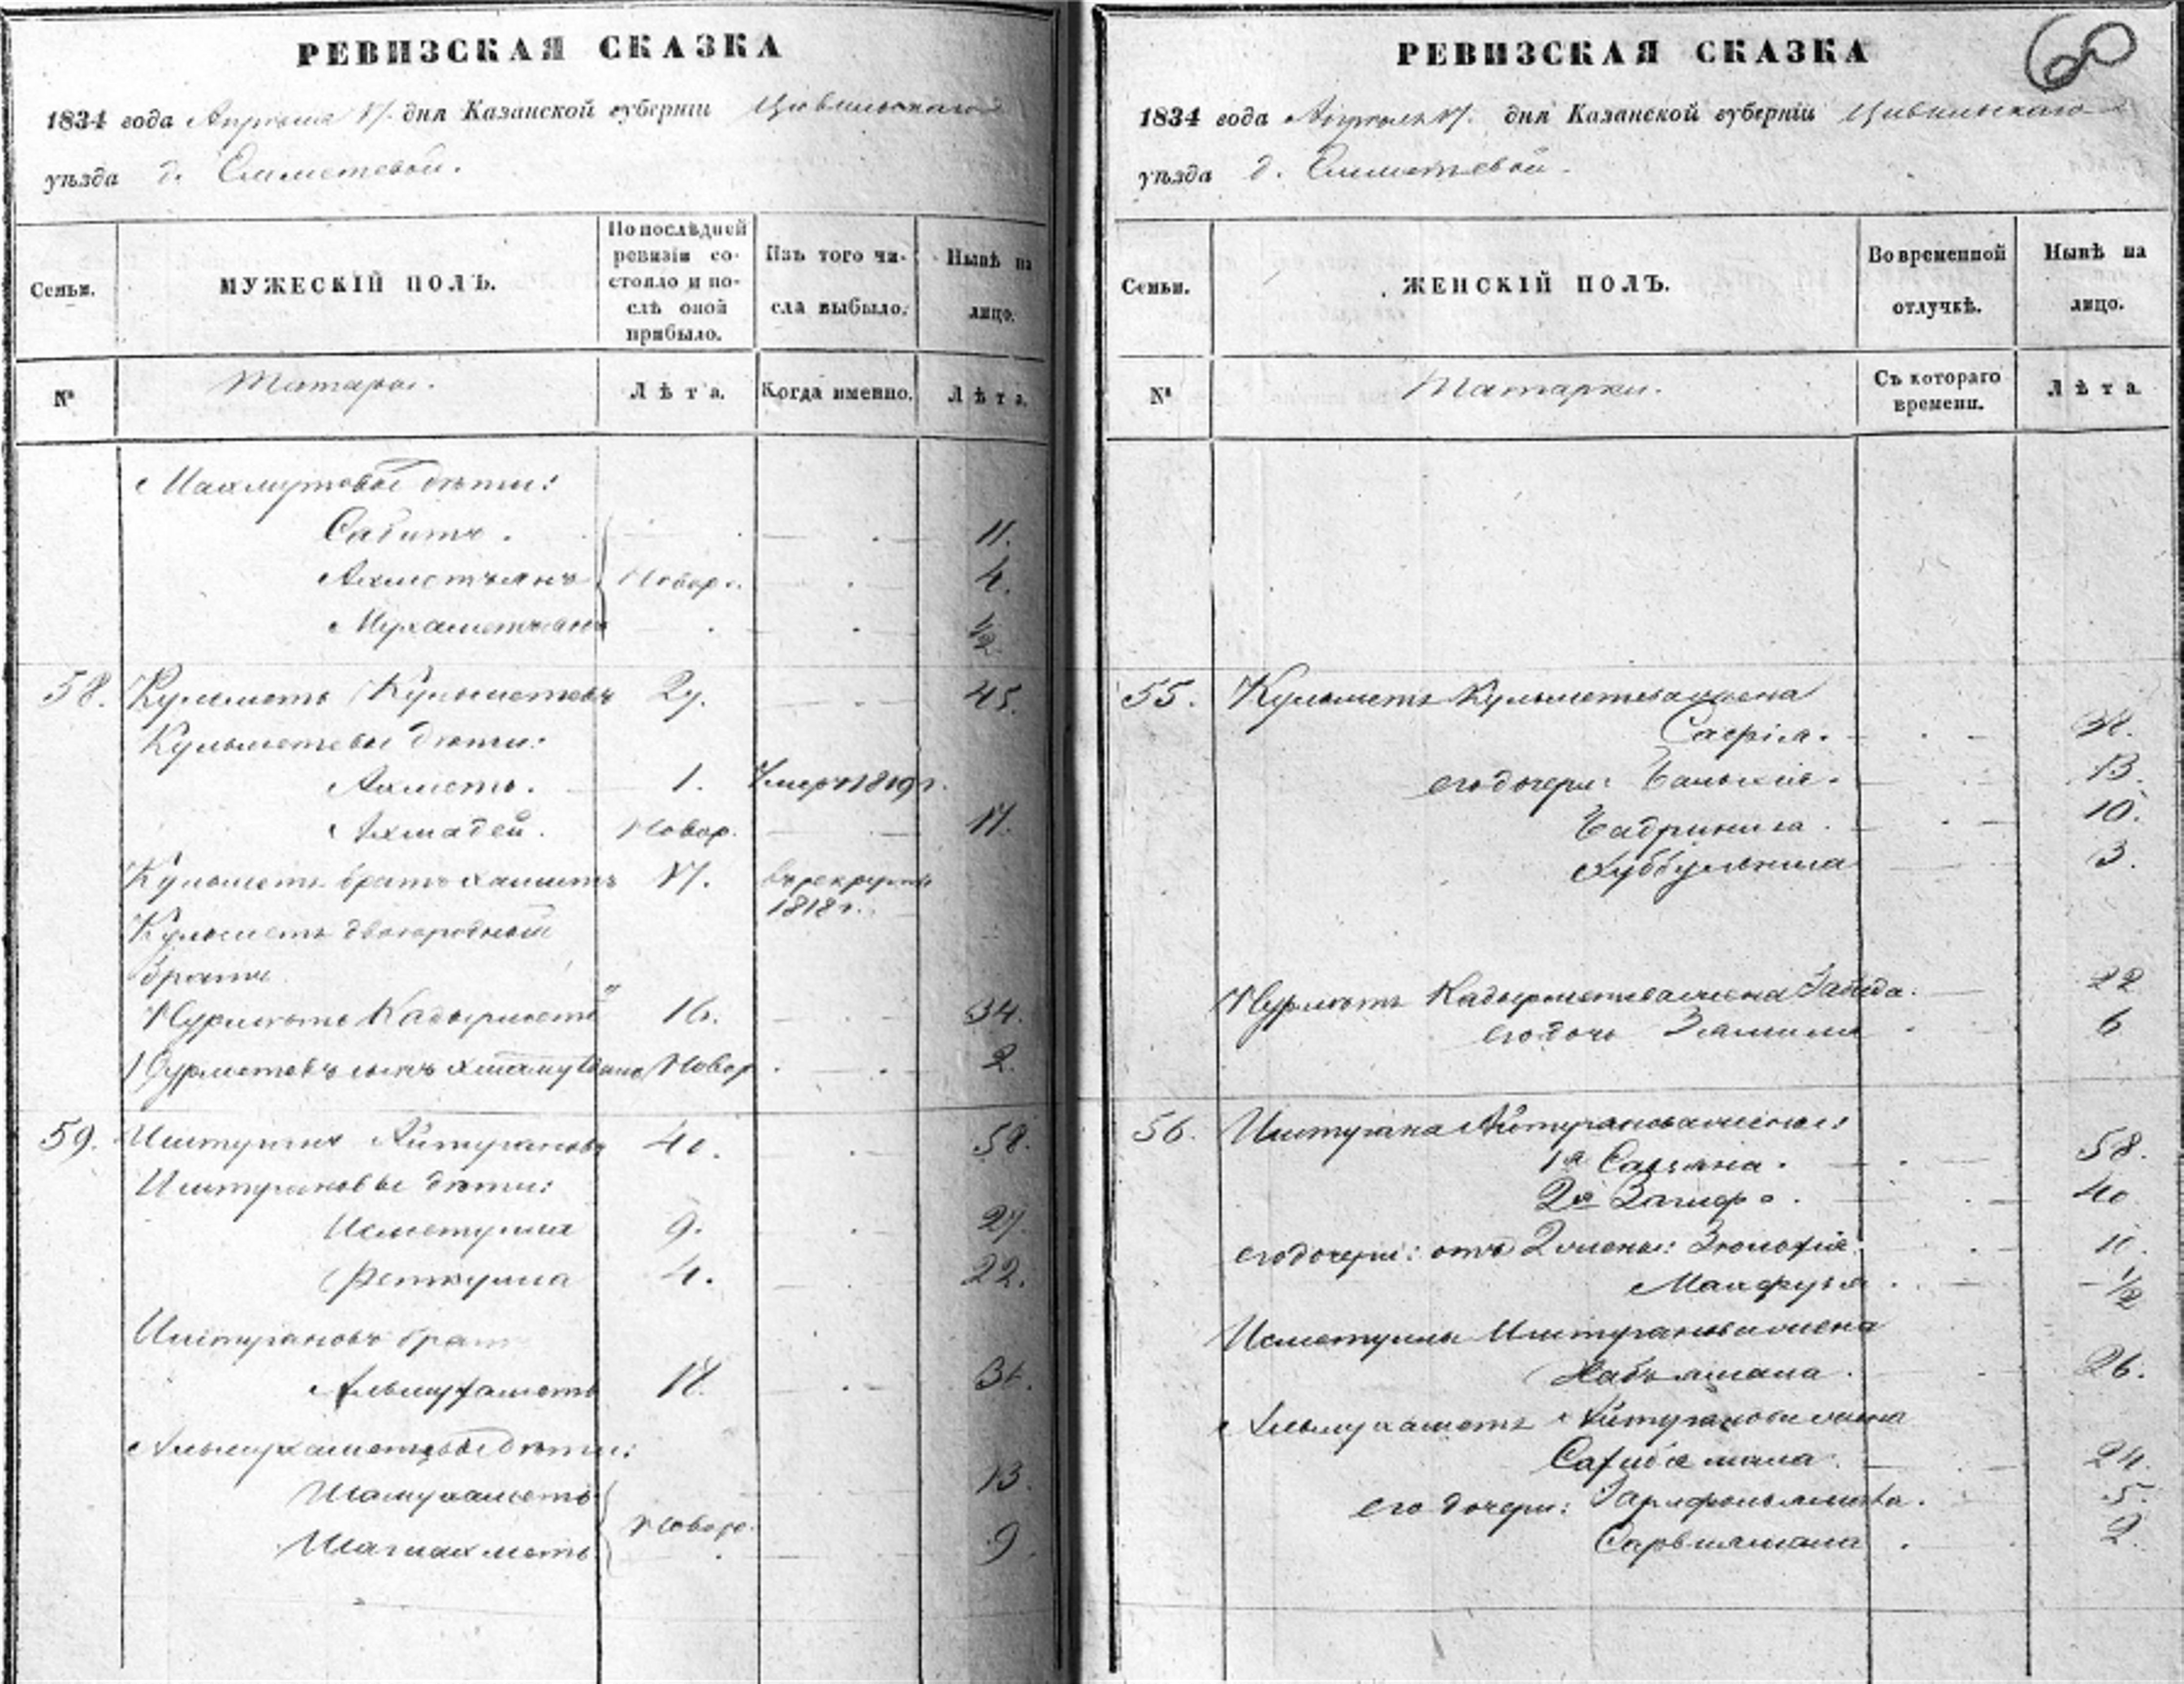 РЕВИЗСКАЯ СКАЗКА
1834 года Апреля 17 дня Казанской губерніи Цивильскаго
уѣзда д. Симетевой.
Семьи.
МУЖЕСКІЙ ПОЛЪ.
По послѣдней ревизіи состояло и послѣ оной прибыло.
Изъ того числа выбыло.
Нынѣ на лицо.
№
Татары.
Лѣта.
Когда именно.
Лѣта.
Махмутовы дѣти:
Сабитъ. 11.
Ахметьянъ Новор. 4.
Мухаметьянъ ½
58. Кульметь Кульметевъ 27. 45.
Кульметевы дѣти:
Ахметь. 1. Умеръ 1819 г.
Ахмадей. Новор. 17.
Кульметь братъ Хамитъ 17. въ рекруты
1818 г.
Кульметь двоюродный
братъ
Нурметь Кадырмет 16. 34.
Нурметевъ сынъ Новор 2.
59. Иштуганъ Айтугановъ 40. 58.
Иштугановы дѣти:
Исметулла 9. 27.
Феткулла 4. 22.
Иштугановъ брат
Альмухаметь 18. 36.
Альмухаметевы дѣти:
Шамухаметь 13.
Новор.
Шагиахметь 9.
РЕВИЗСКАЯ СКАЗКА
60
1834 года Апреля 17. дня Казанской губерніи Цивильскаго
уѣзда д. Симетевой.
Семьи.
ЖЕНСКІЙ ПОЛЪ.
Во временной отлучкѣ.
Нынѣ на лицо.
№
Татарки.
Съ котораго времени.
Лѣта
55. Кульметь Кульметева жена
Сафія. 38.
его дочери: 13.
Бадриниса. 10.
3.
Нурметь Кадырметева жена Забида. 22
его дочь Замиля 6
56. Иштугана Айтуганова жены:
1я 58.
2я Загифа. 40
его дочери: отъ 2 жены: 10.
Махфузя. ½
Исметуллы Иштуганова жена
26.
Альмухаметь Айтуганова жена
Сахибямала. 24.
его дочери: 5.
Сарвиямала 2.